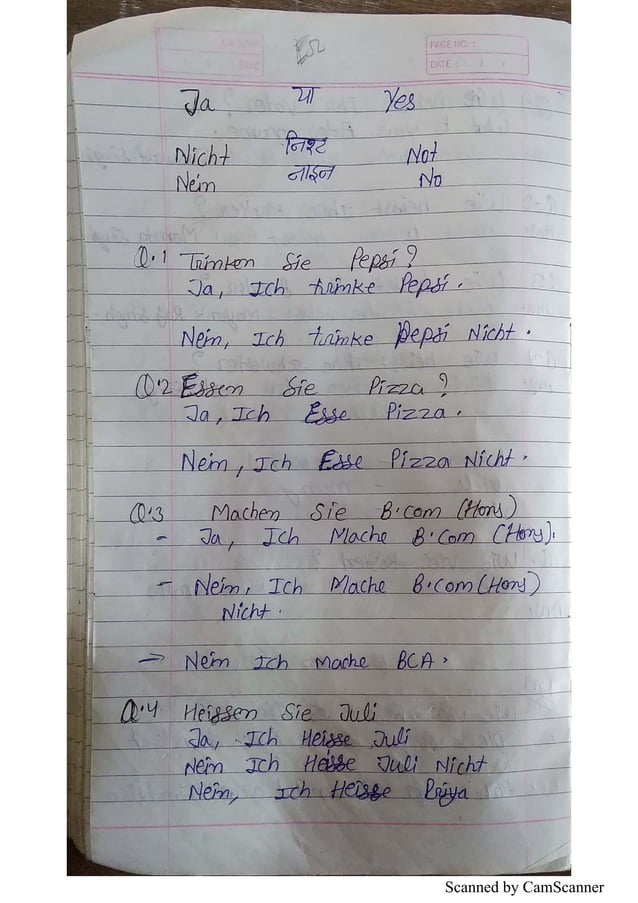 PAGE NO. :
DATE : / /
Ja या Yes
Nicht निश्ट Not
Nein नाइन No
Q.1 Trinken Sie Pepsi?
Ja, Ich trinke Pepsi.
Nein, Ich trinke Pepsi Nicht.
Q.2 Essen Sie Pizza?
Ja, Ich Esse Pizza.
Nein, Ich Esse Pizza Nicht.
Q.3 Machen Sie B.com (Hons)
- Ja, Ich Mache B.com (Hons).
- Nein, Ich Mache B.com (Hons)
Nicht.
→ Nein Ich Mache BCA.
Q.4 Heissen Sie Juli
Ja, Ich Heisse Juli
Nein Ich Heisse Juli Nicht
Nein, Ich Heisse Priya
Scanned by CamScanner